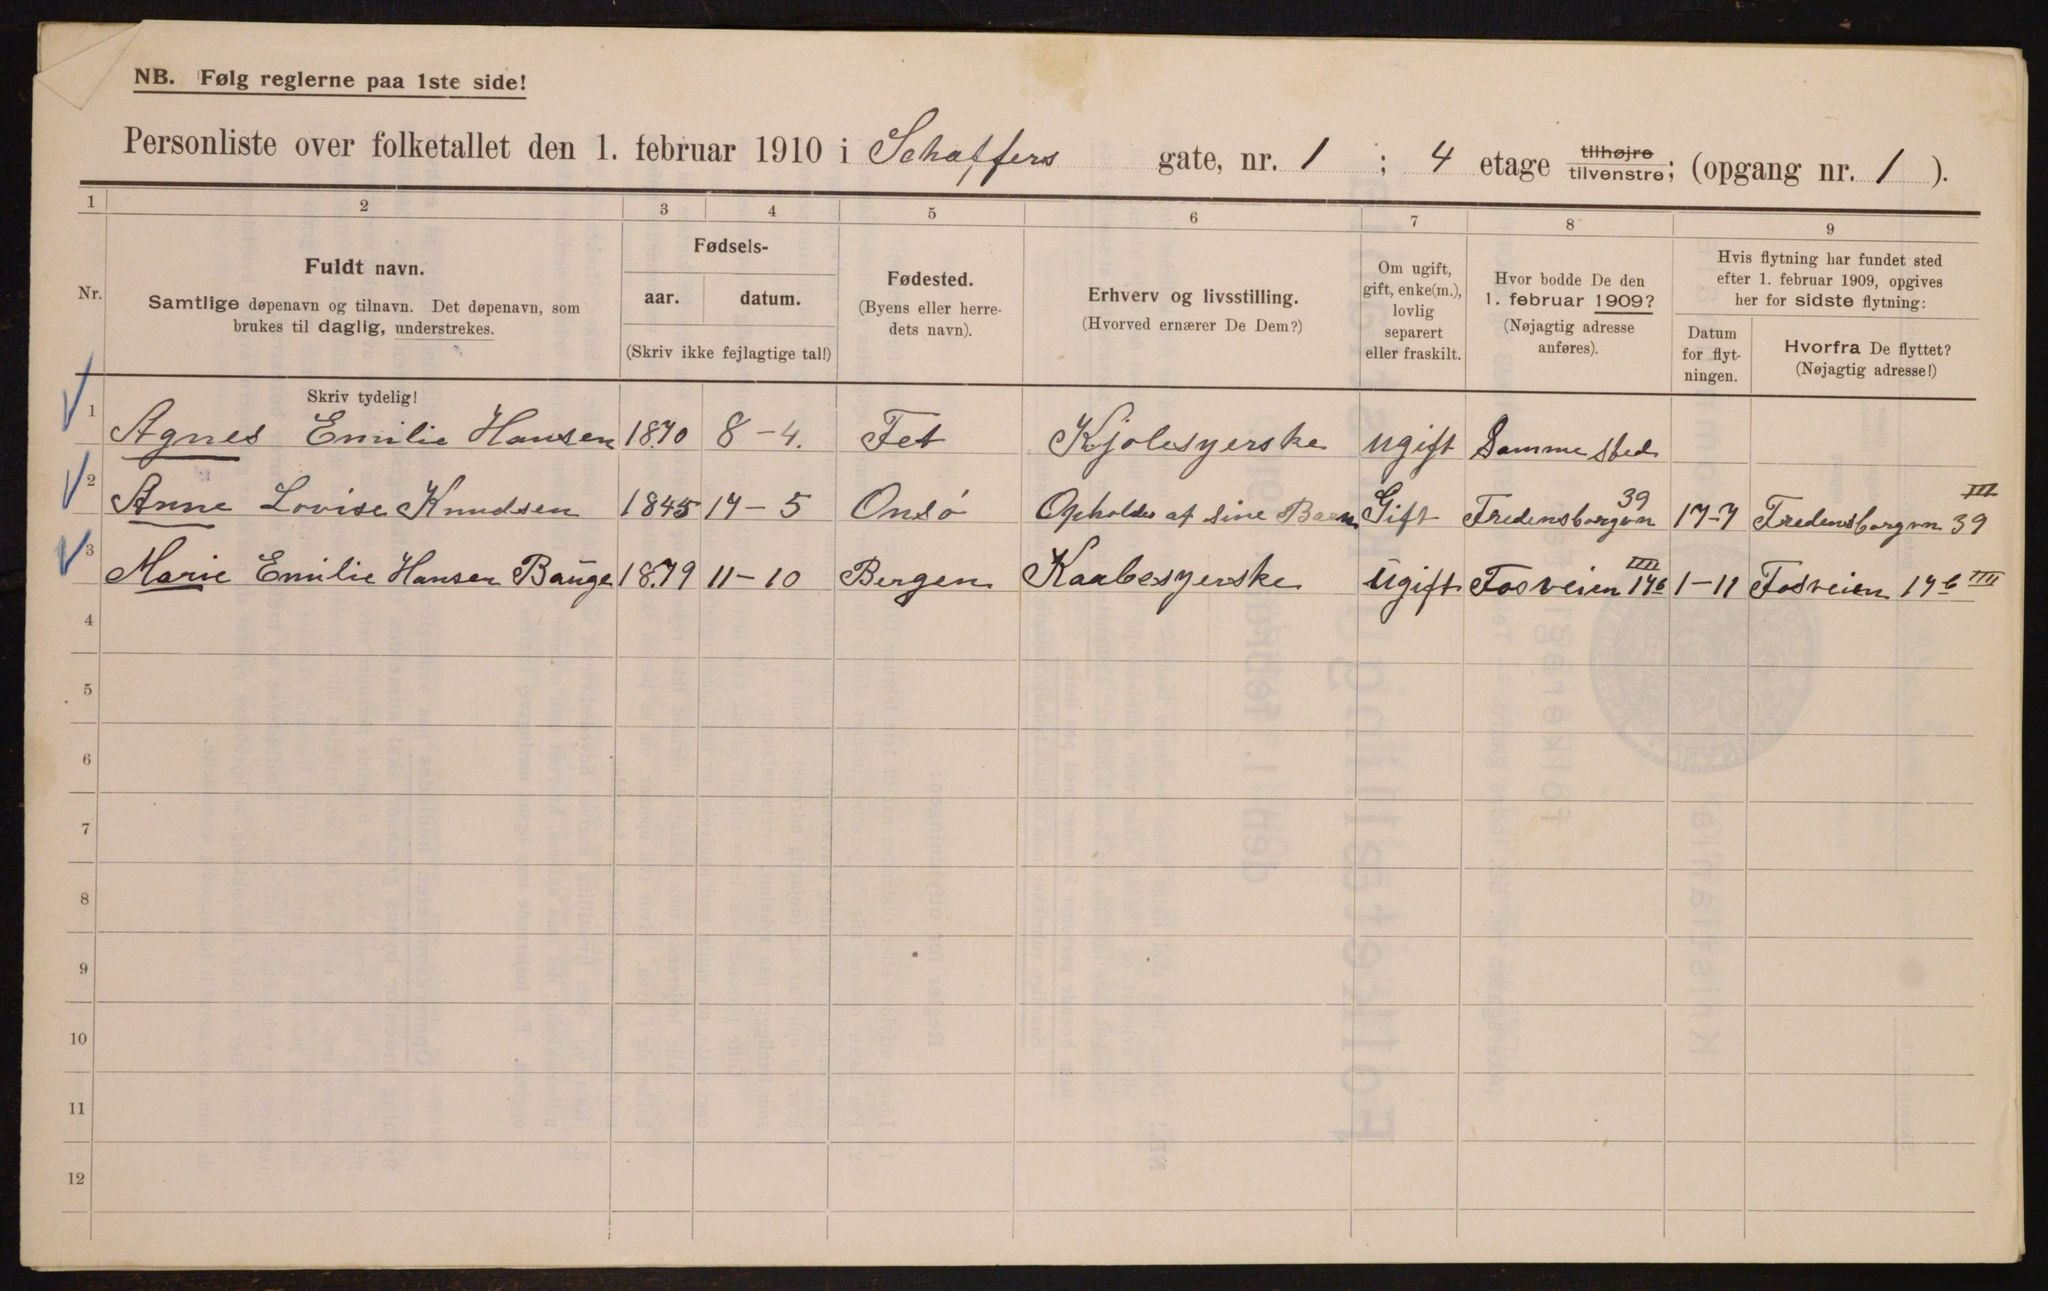 NB. Følg reglerne paa 1ste side!
Personliste over folketallet den 1. februar 1910 i Schaffers gate, nr. 1 ; 4 etage tilhøjre tilvenstre; (opgang nr. 1 ).
1 2 3 4 5 6 7 8 9
Nr.
Fuldt navn.
Samtlige døpenavn og tilnavn. Det døpenavn, som
brukes til daglig, understrekes.
Skriv tydelig!
Fødsels-
aar. datum.
(Skriv ikke fejlagtige tal!)
Fødested.
(Byens eller herre-
dets navn).
Erhverv og livsstilling.
(Hvorved ernærer De Dem?)
Om ugift,
gift, enke(m.),
lovlig
separert
eller fraskilt.
Hvor bodde De den
1. februar 1909?
(Nøjagtig adresse
anføres).
Hvis flytning har fundet sted
efter 1. februar 1909, opgives
her for sidste flytning:
Datum
for flyt-
ningen.
Hvorfra De flyttet?
(Nøjagtig adresse!)
1 Agnes Emilie Hansen 1870 8-4. Fet Kjolesyerske Ugift Samme sted
2 Anne Lovise Knudsen 1845 17-5 Onsö Opholdes af sine Barn Gift Fredensborgvn 39 17-7 Fredensborgvn 39 III
3 Marie Emilie Hansen Bauge 1879 11-10 Bergen Kaabesyerske Ugift Fosveien 17b IIII 1-11 Fosveien 17b IIII
4
5
6
7
8
9
10
11
12